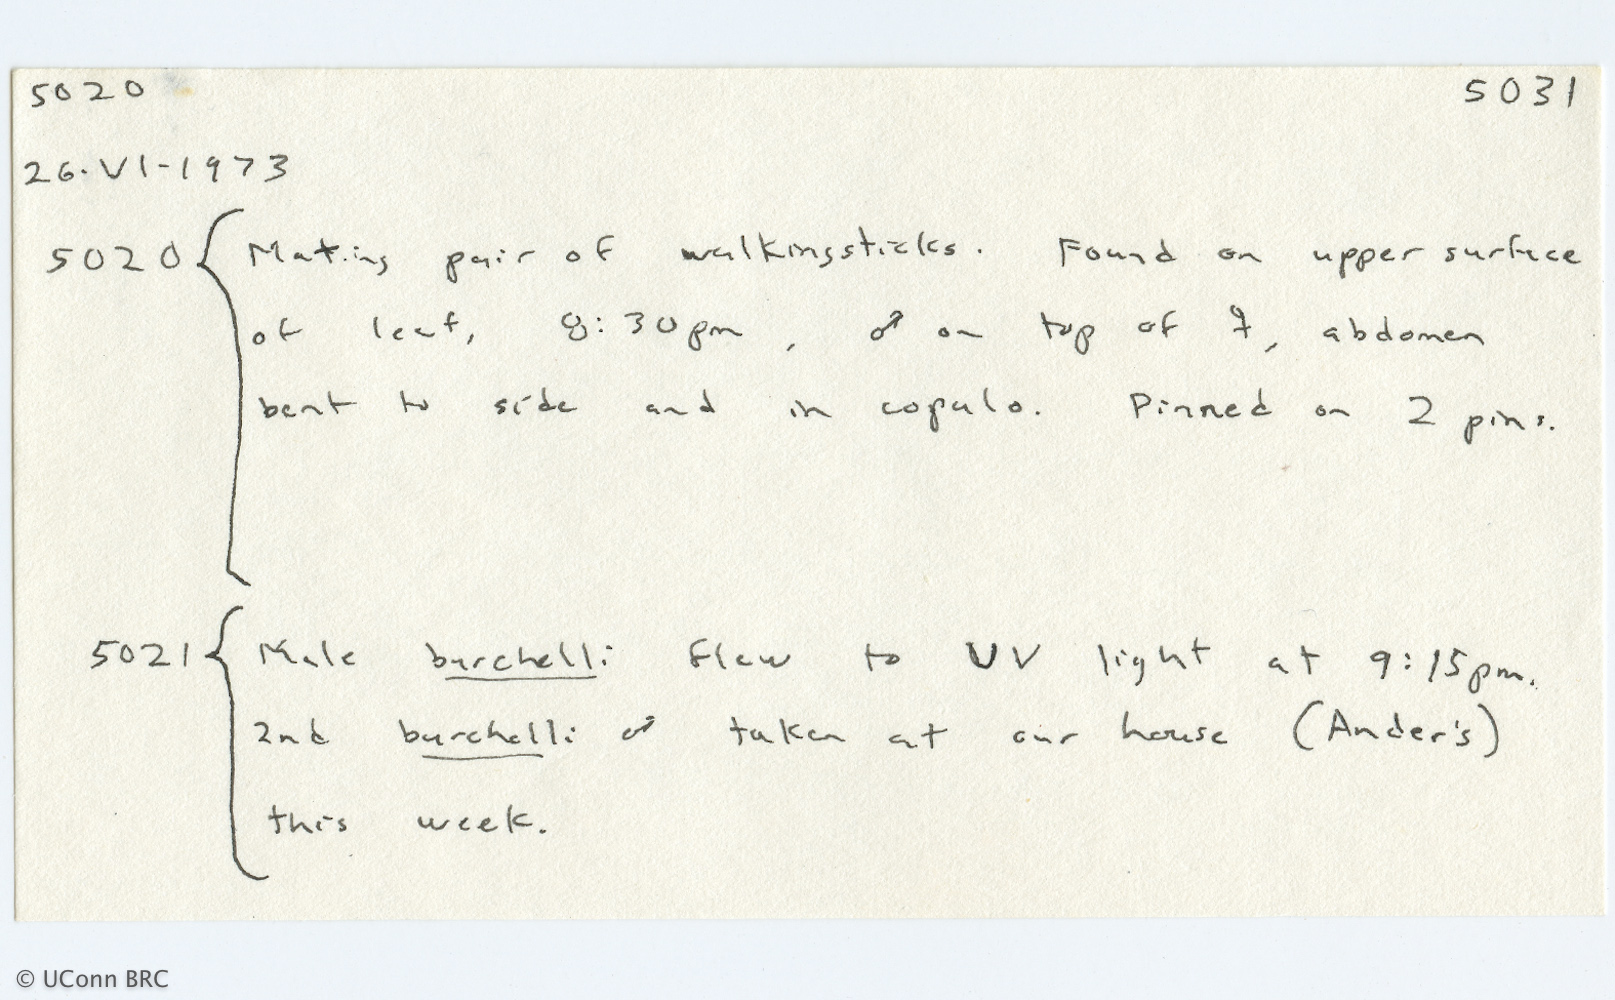 5020 5031
26-VI-1973
5020 { Mating pair of walkingsticks. Found on upper surface
of leaf, 8:30pm, ♂ on top of ♀, abdomen
bent to side and in copulo. Pinned on 2 pins.
5021 { Male burchelli flew to UV light at 9:15pm.
2nd burchelli ♂ taken at our house (Ander's)
this week.
© UConn BRC